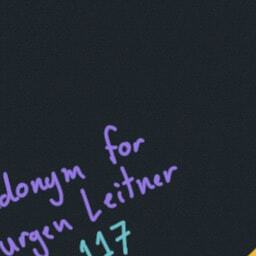 donym for
urgen Leitner
117